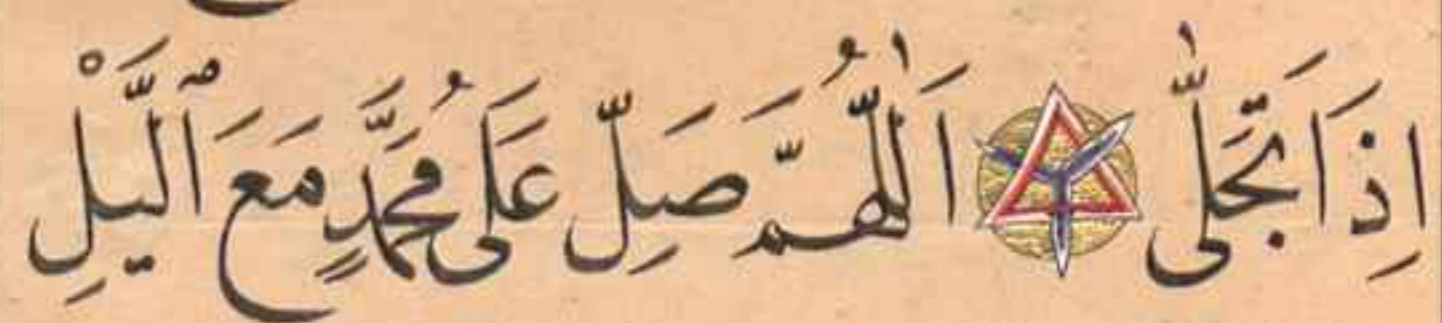 اِذَا تَجَلّٰى اَللّٰهُمَّ صَلِّ عَلٰى مُحَمَّدٍ مَعَ ٱلَّيْلِ